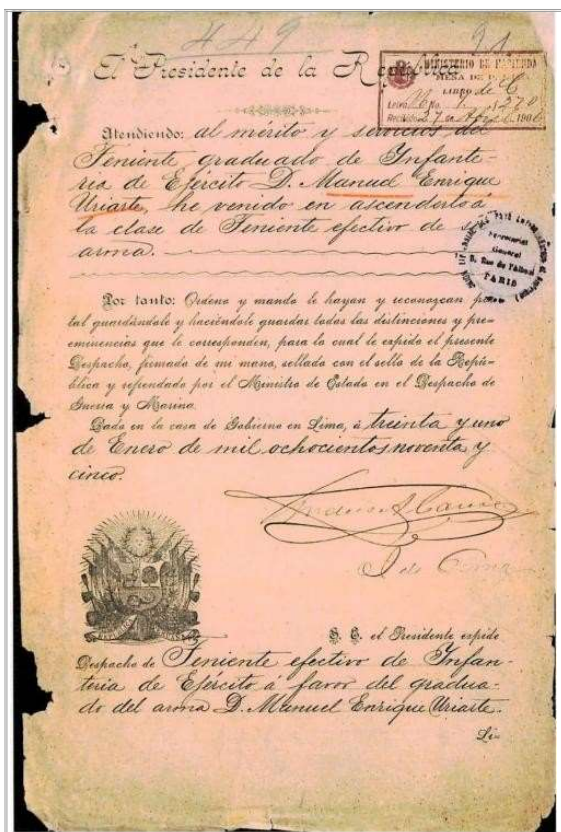 449
El Presidente de la República
MINISTERIO DE HACIENDA
MESA DE
LIBRO de
Letra No. 1270
Recibido 7 de 190
Atendiendo: al mérito y servicios del
Teniente graduado de Infante-
ria de Ejército D. Manuel Enrique
Uriarte, he venido en ascenderlo á
la clase de Teniente efectivo de
arma.
Secretariat
General
5, Rue de l'Alboni
PARIS
Por tanto: Ordeno y mando le hayan y reconozcan por
tal guardándole y haciéndole guardar todas las distinciones y pre-
eminencias que le corresponden, para lo cual le expido el presente
Despacho, firmado de mi mano, sellado con el sello de la Repúb-
blica y refrendado por el Ministro de Estado en el Despacho de
Guerra y Marina.
Dado en la casa de Gobierno en Lima, á treinta y uno
de Enero de mil ochocientos noventa y
cinco.
S. E. el Presidente expide
Despacho de Teniente efectivo de Infan-
teria de Ejército á favor del gradua-
do del arma D. Manuel Enrique Uriarte.
Li=